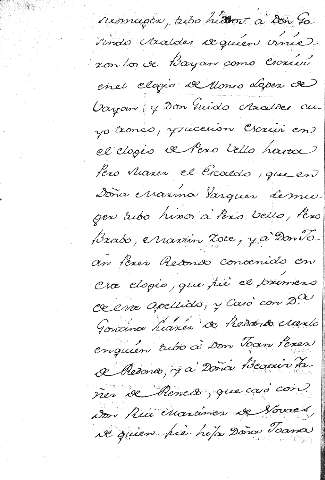 su muger, tubo hixos à Don Ga-
lindo Araldes de quien vinie
ron los de Bayan como escriui
en el elogio de Alonso Lopez de
Vayan; y Don Guido Araldes cu
yo tronco, y sucesion escriui en
el elogio de Pero Vello hasta
Pero Nuñez el Escaldo, que en
Doña Marina Vazquez de mu-
ger tubo hixos à Pero Vello, Pero
Brabo, Martin Zote, y à Don Jo-
án Perez Redondo contenido en
este elogio, que fué el primero
de este Apellido, y casó con D.ª
Gontina Suárez de Redondo Merlo
en quien tubo à Don Joan Perez
de Redondo, y à Doña Beatriz Ya-
ñez de Renedo, que casó con
Don Rui Martinez de Novoes,
de quien fue hija Doña Joana